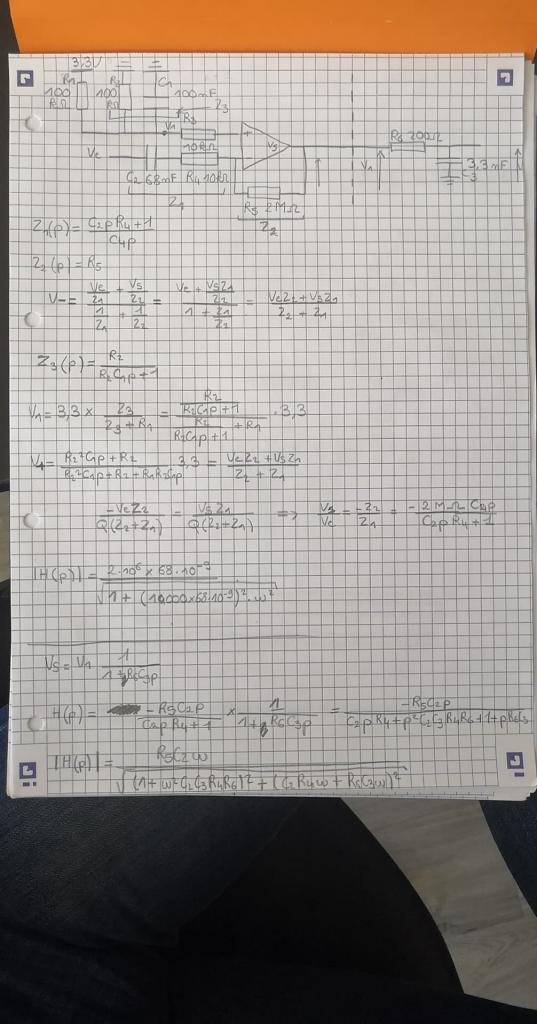 3,3V
R1 100 kΩ
R2 100 kΩ
C1 100nF
Z3
V1
R3 10kΩ
+
-
VS
Ve
C2 68nF R4 10kΩ
Z1
R5 2MΩ
Z2
V1
R6 200Ω
3,3nF
C3
Z1(p) = (C2pR4+1)/(C4p)
Z2(p) = R5
V- = (Ve/Z1 + VS/Z2)/(1/Z1 + 1/Z2) = (Ve + VSZ1/Z2)/(1 + Z1/Z2) = (VeZ2 + VSZ1)/(Z2 + Z1)
Z3(p) = R2/(R2C1p+1)
V1 = 3,3 × Z3/(Z3+R1) = (R2/(R2C1p+1))/(R2/(R2C1p+1) + R1) · 3,3
V+ = (R2²C1p + R2)/(R2²C1p + R2 + R1R2C1p) · 3,3 = (VeZ2 + VSZ1)/(Z2 + Z1)
-VeZ2/(Q(Z2+Z1)) - VSZ1/(Q(Z2+Z1)) ⇒ VS/Ve = -Z2/Z1 = (-2MΩ C4p)/(C2pR4+1)
|H(p)| = (2·10⁶ × 68·10⁻⁹)/√(1 + (10000×68·10⁻⁹)²·ω²)
VS = V1 1/(1+R6C3p)
H(p) = -R5C2p/(C2pR4+1) × 1/(1+pR6C3p) = -R5C2p/(C2pR4+p²C2C3R4R6+1+pR6C3)
|H(p)| = R5C2ω/√((1+ω²C2C3R4R6)²+(C2R4ω+R6C3ω)²)